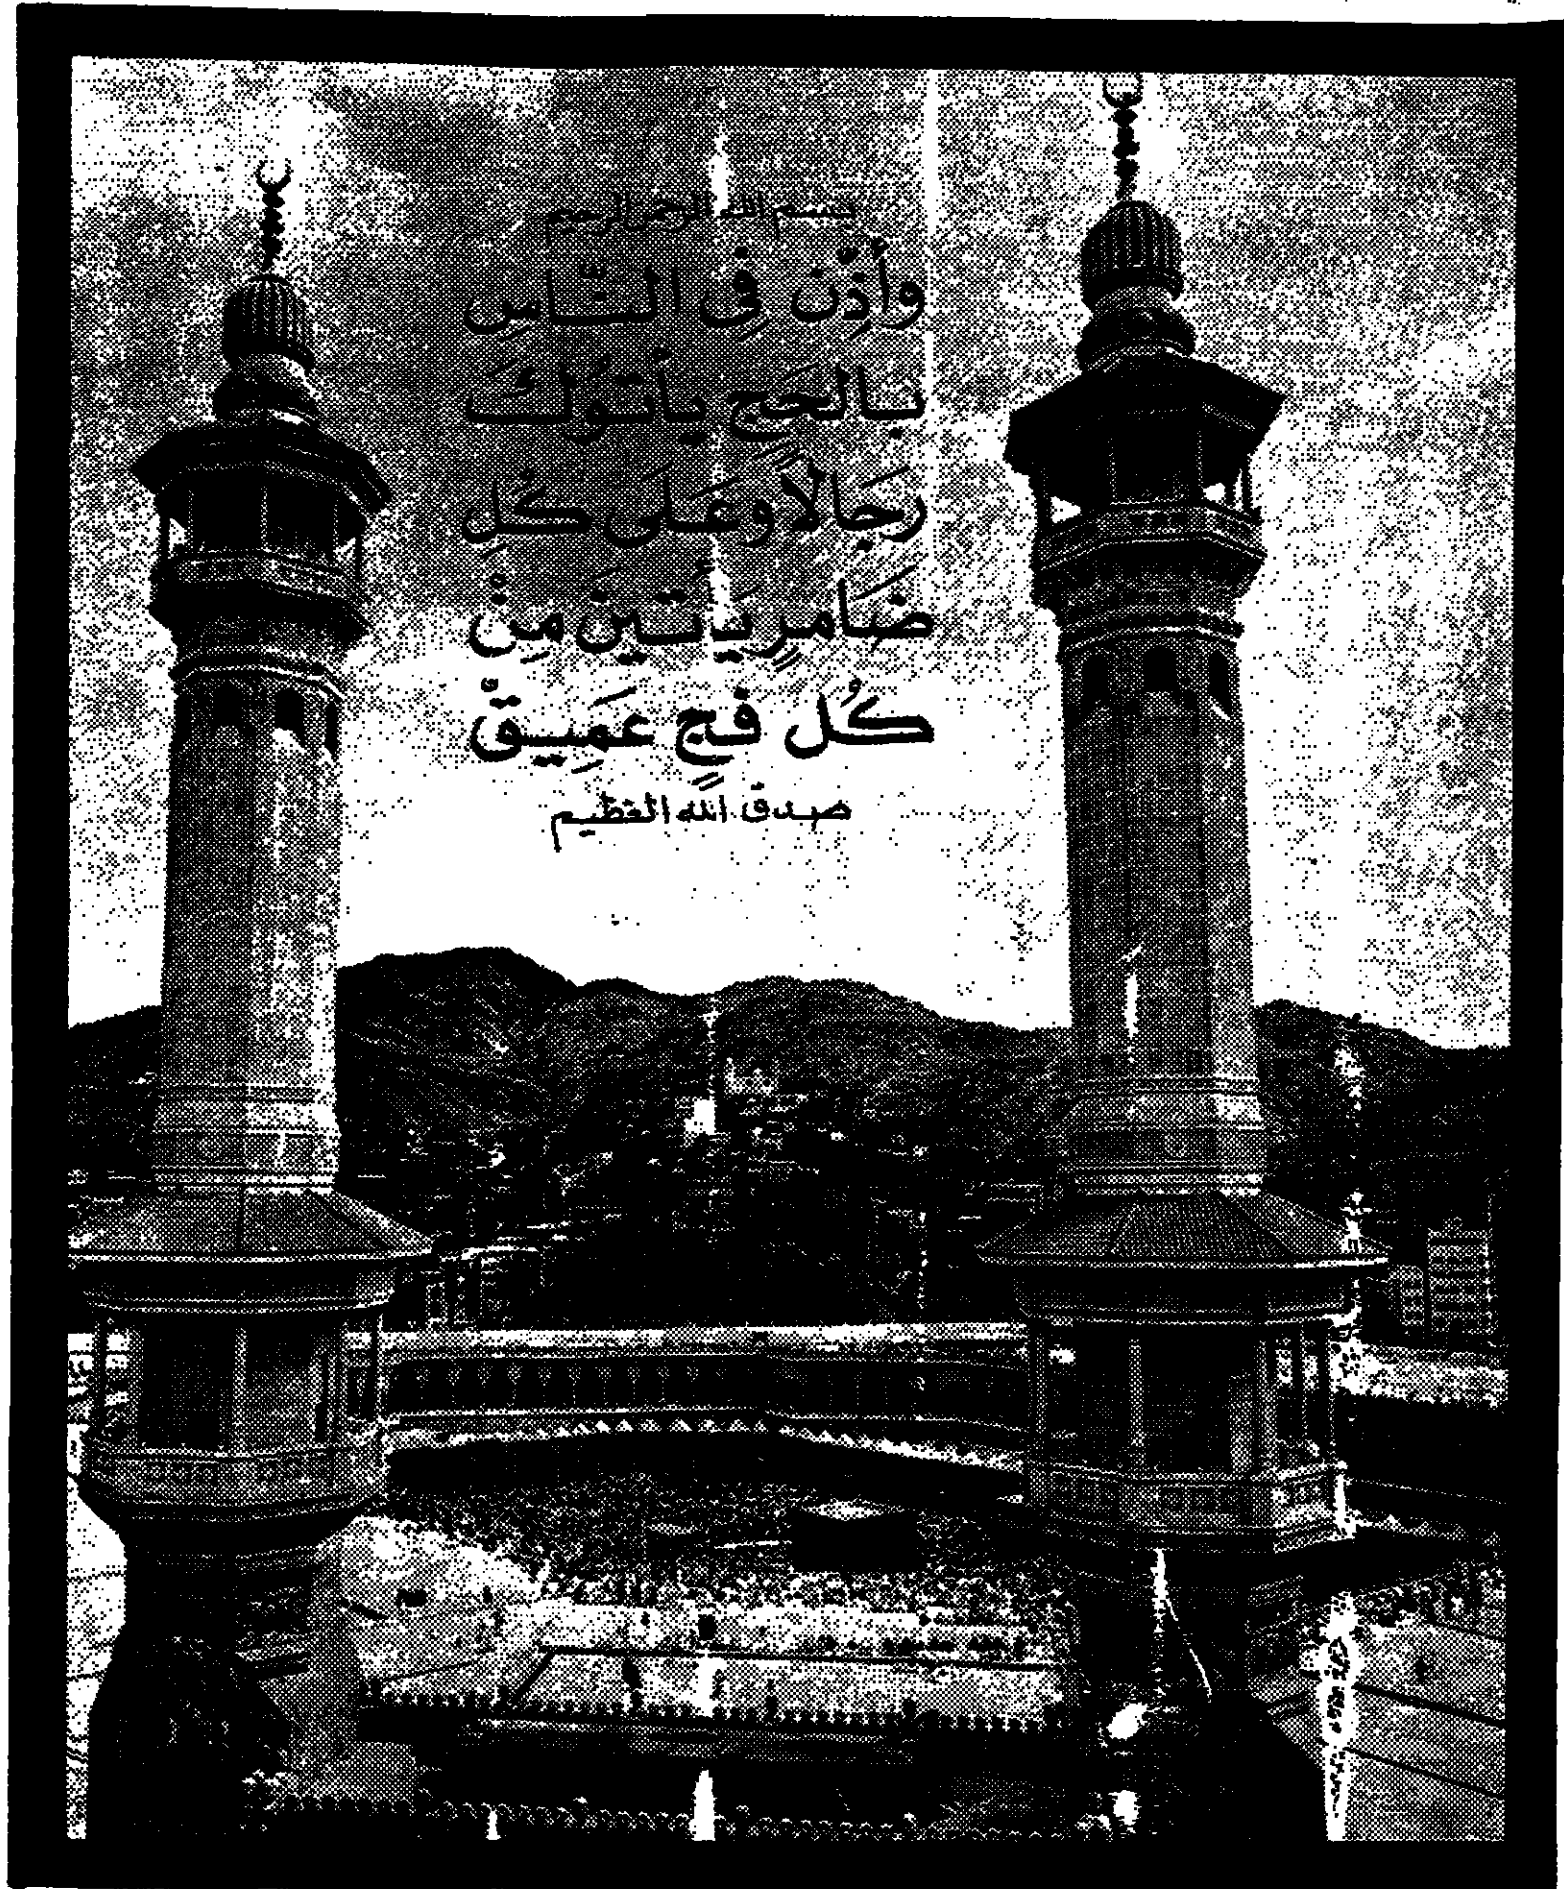 بسم الله الرحمن الرحيم
وأَذِّن فِى النَّاسِ
بالحَجِّ يأتوُكَ
رَجَالاً وعَلَى كُلِ
ضَامرٍ يَأتينَ مِنْ
كُل فجٍ عَمِيقّ
صدق الله العظيم